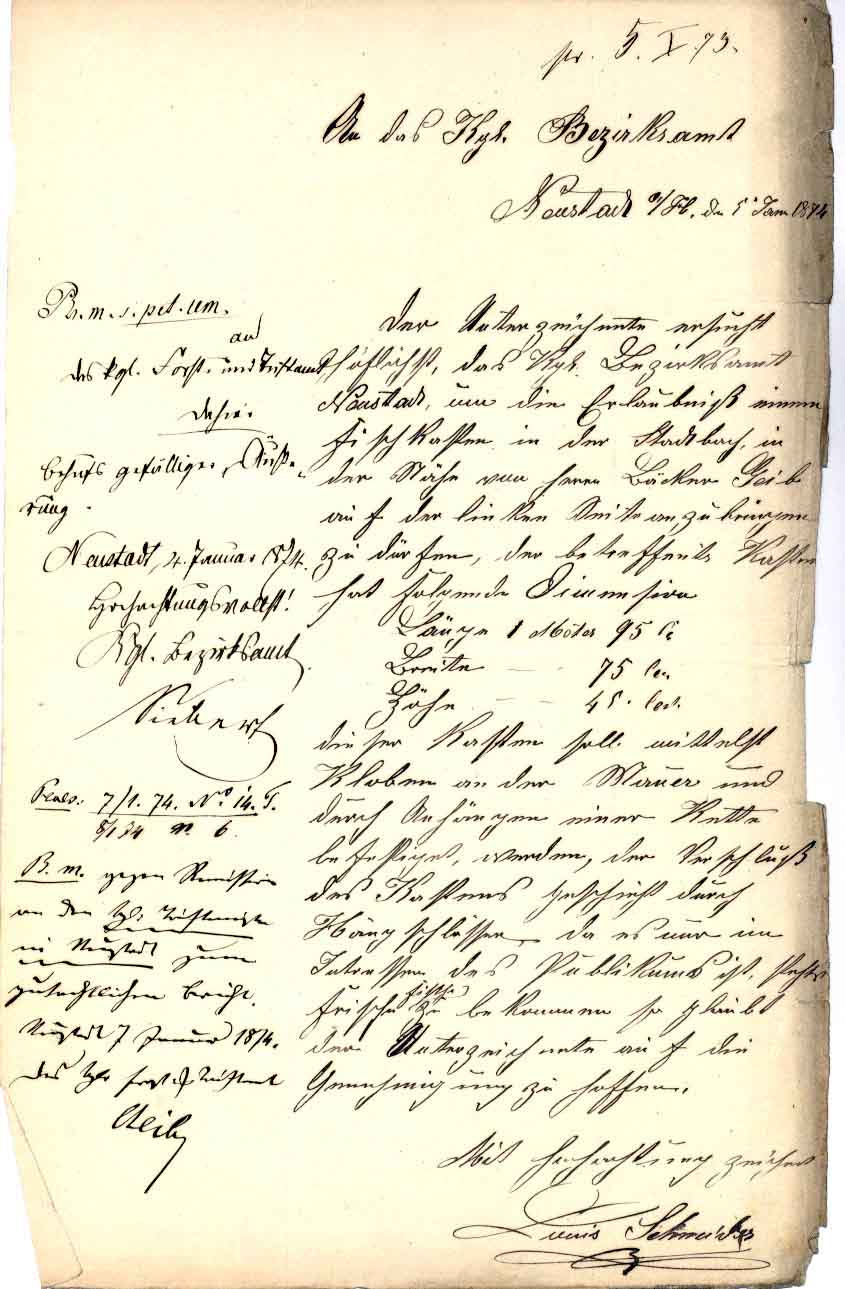 pr. 5. X. 73.
An das Kgl. Bezirksamt
Neustadt a/H. den 5t Jan 1874
Der Unterzeichnete ersucht
höflichst, das Kgl. Bezirksamt
Neustadt, um die Erlaubniß einen
Fischkasten in der Stadtbach, in
der Nähe von Herrn Bäcker Geib
auf der linken Seite anzubringen
zu dürfen, der betreffente Kasten
hat folgende Dimension
Länge 1 Meter 95
Breite — 75 Cen
Höhe — 45 Cent.
dieser Kasten soll mittelst
Kloben an der Mauer und
durch Anhängen einer Kette
befestiget, werden, der Verschluß
des Kastens geschieht durch
Hängschlösser, da es nur im
Intressen des Publikums ist, stehts
frische Fische zu bekommen so glaubt
der Unterzeichnete auf die
Genehmigung zu hoffen.
Mit Hochachtung zeichnet
Louis Schneider
B. m. s. pet. rem.
an
das kgl. Forst- und Triftamt
dahier
behufs gefälliger Äuße-
rung.
Neustadt, 4. Januar 1874.
Hochachtungsvollst!
Kgl. Bezirksamt
Siebert
Praes: 7/1. 74. No. 14. T.
8/1 74 N. 6.
B. m. gegen Remission
an den kgl. Triftmeister
in Neustadt zum
gutachtlichen Bericht.
Neustadt 7 Januar 1874.
Das kgl. Forst & Triftamt